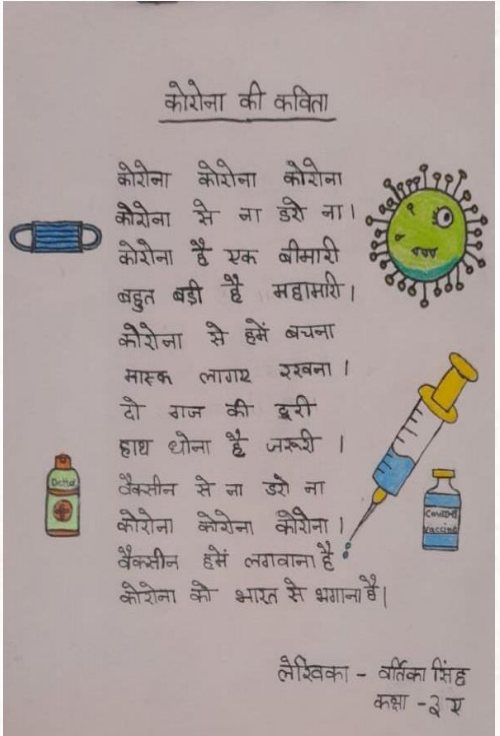 कोरोना की कविता
कोरोना कोरोना कोरोना
कोरोना से ना डरो ना।
कोरोना है एक बीमारी
बहुत बड़ी है महामारी।
कोरोना से हमें बचना
मास्क लागाए रखना।
दो गज की दूरी
हाथ धोना है जरूरी।
वैक्सीन से ना डरो ना
कोरोना कोरोना कोरोना।
वैक्सीन हमें लगवाना है
कोरोना को भारत से भगाना है।
Dettol
Covid19
vaccine
लेखिका - वर्तिका सिंह
कक्षा - ३ ए